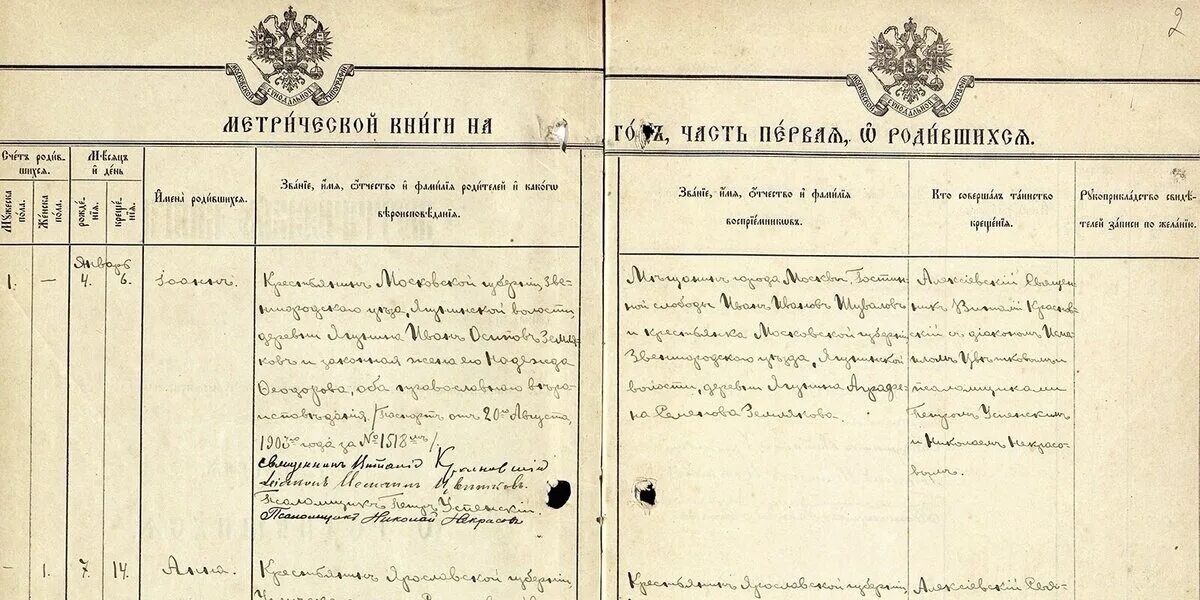 2
МОСКОВСКОЙ СѴНОДАЛЬНОЙ ТИПОГРАФІИ
МОСКОВСКОЙ СѴНОДАЛЬНОЙ ТИПОГРАФІИ
МЕТРИ́ЧЕСКОЙ КНИ́ГИ НА ГО́ДЪ, ЧАСТЬ ПЕ́РВАЯ, Ѡ РОДИ́ВШИХСЯ.
Счетъ роди́в-
шихся.
Му́жеска по́ла.
Же́нска по́ла.
Мѣсяцъ
и день
рожде́-
нія.
креще́-
нія.
Имена̀ роди́вшихся.
Зва́ніе, и́мя, ѻ́тчество и фами́лія роди́телей и како́гѡ
вѣроисповѣ́данія.
Зва́ніе, и́мя, ѻ́тчество и фами́лія
воспріе́мниковъ.
Кто соверша́лъ та́инство
креще́нія.
Рꙋкоприкла́дство свидѣ́-
телей за́писи по жела́нію.
Январь
1. — 4. 6. Іоаннъ.
Крестьянинъ Московской губерніи, Зве-
нигородскаго уѣзда, Ягунинской волости
деревни Ягунина Иванъ Осиповъ Земля-
ковъ и законная жена его Надежда
Ѳеодорова, оба православнаго вѣро-
исповѣданія /Паспортъ отъ 20го Августа,
года за № 1518мъ/.
Священникъ Виталій
Діаконъ Цвѣтковъ.
Псаломщикъ Петръ Успенскій.
Псаломщикъ Николай Некрасовъ
Мѣщанинъ города Москвы, Гостин-
ной слободы Иванъ Ивановъ Шуваловъ
и крестьянка Московской губерніи
Звенигородскаго уѣзда, Ягунинской
волости, деревни Ягунина Аграфе-
на Семенова Землякова.
Алексіевскій Священ-
никъ Виталій
съ діакономъ
Цвѣтковымъ и
псаломщиками
Петромъ Успенскимъ
и Николаемъ Некрасо-
вымъ.
— 1. 7. 14. Анна.
Крестьянинъ Ярославской губерніи,
Крестьянинъ Ярославской губерніи,
Алексіевскій